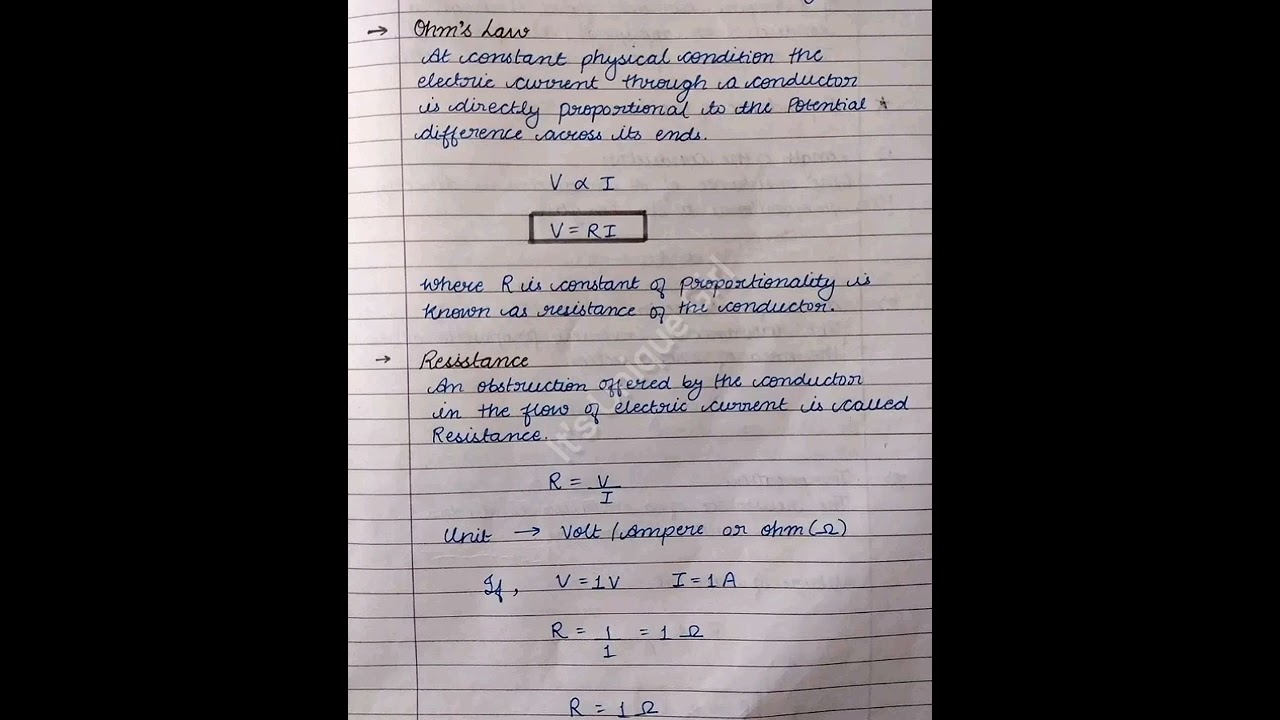 → Ohm's Law
At constant physical condition the
electric current through a conductor
is directly proportional to the Potential
difference across its ends.
V ∝ I
V = RI
where R is constant of proportionality is
known as resistance of the conductor.
→ Resistance
An obstruction offered by the conductor
in the flow of electric current is called
Resistance.
R = V
I
Unit → Volt / Ampere or ohm (Ω)
If, V = 1V I = 1A
R = 1 = 1 Ω
1
R = 1 Ω
It's Unique Girl